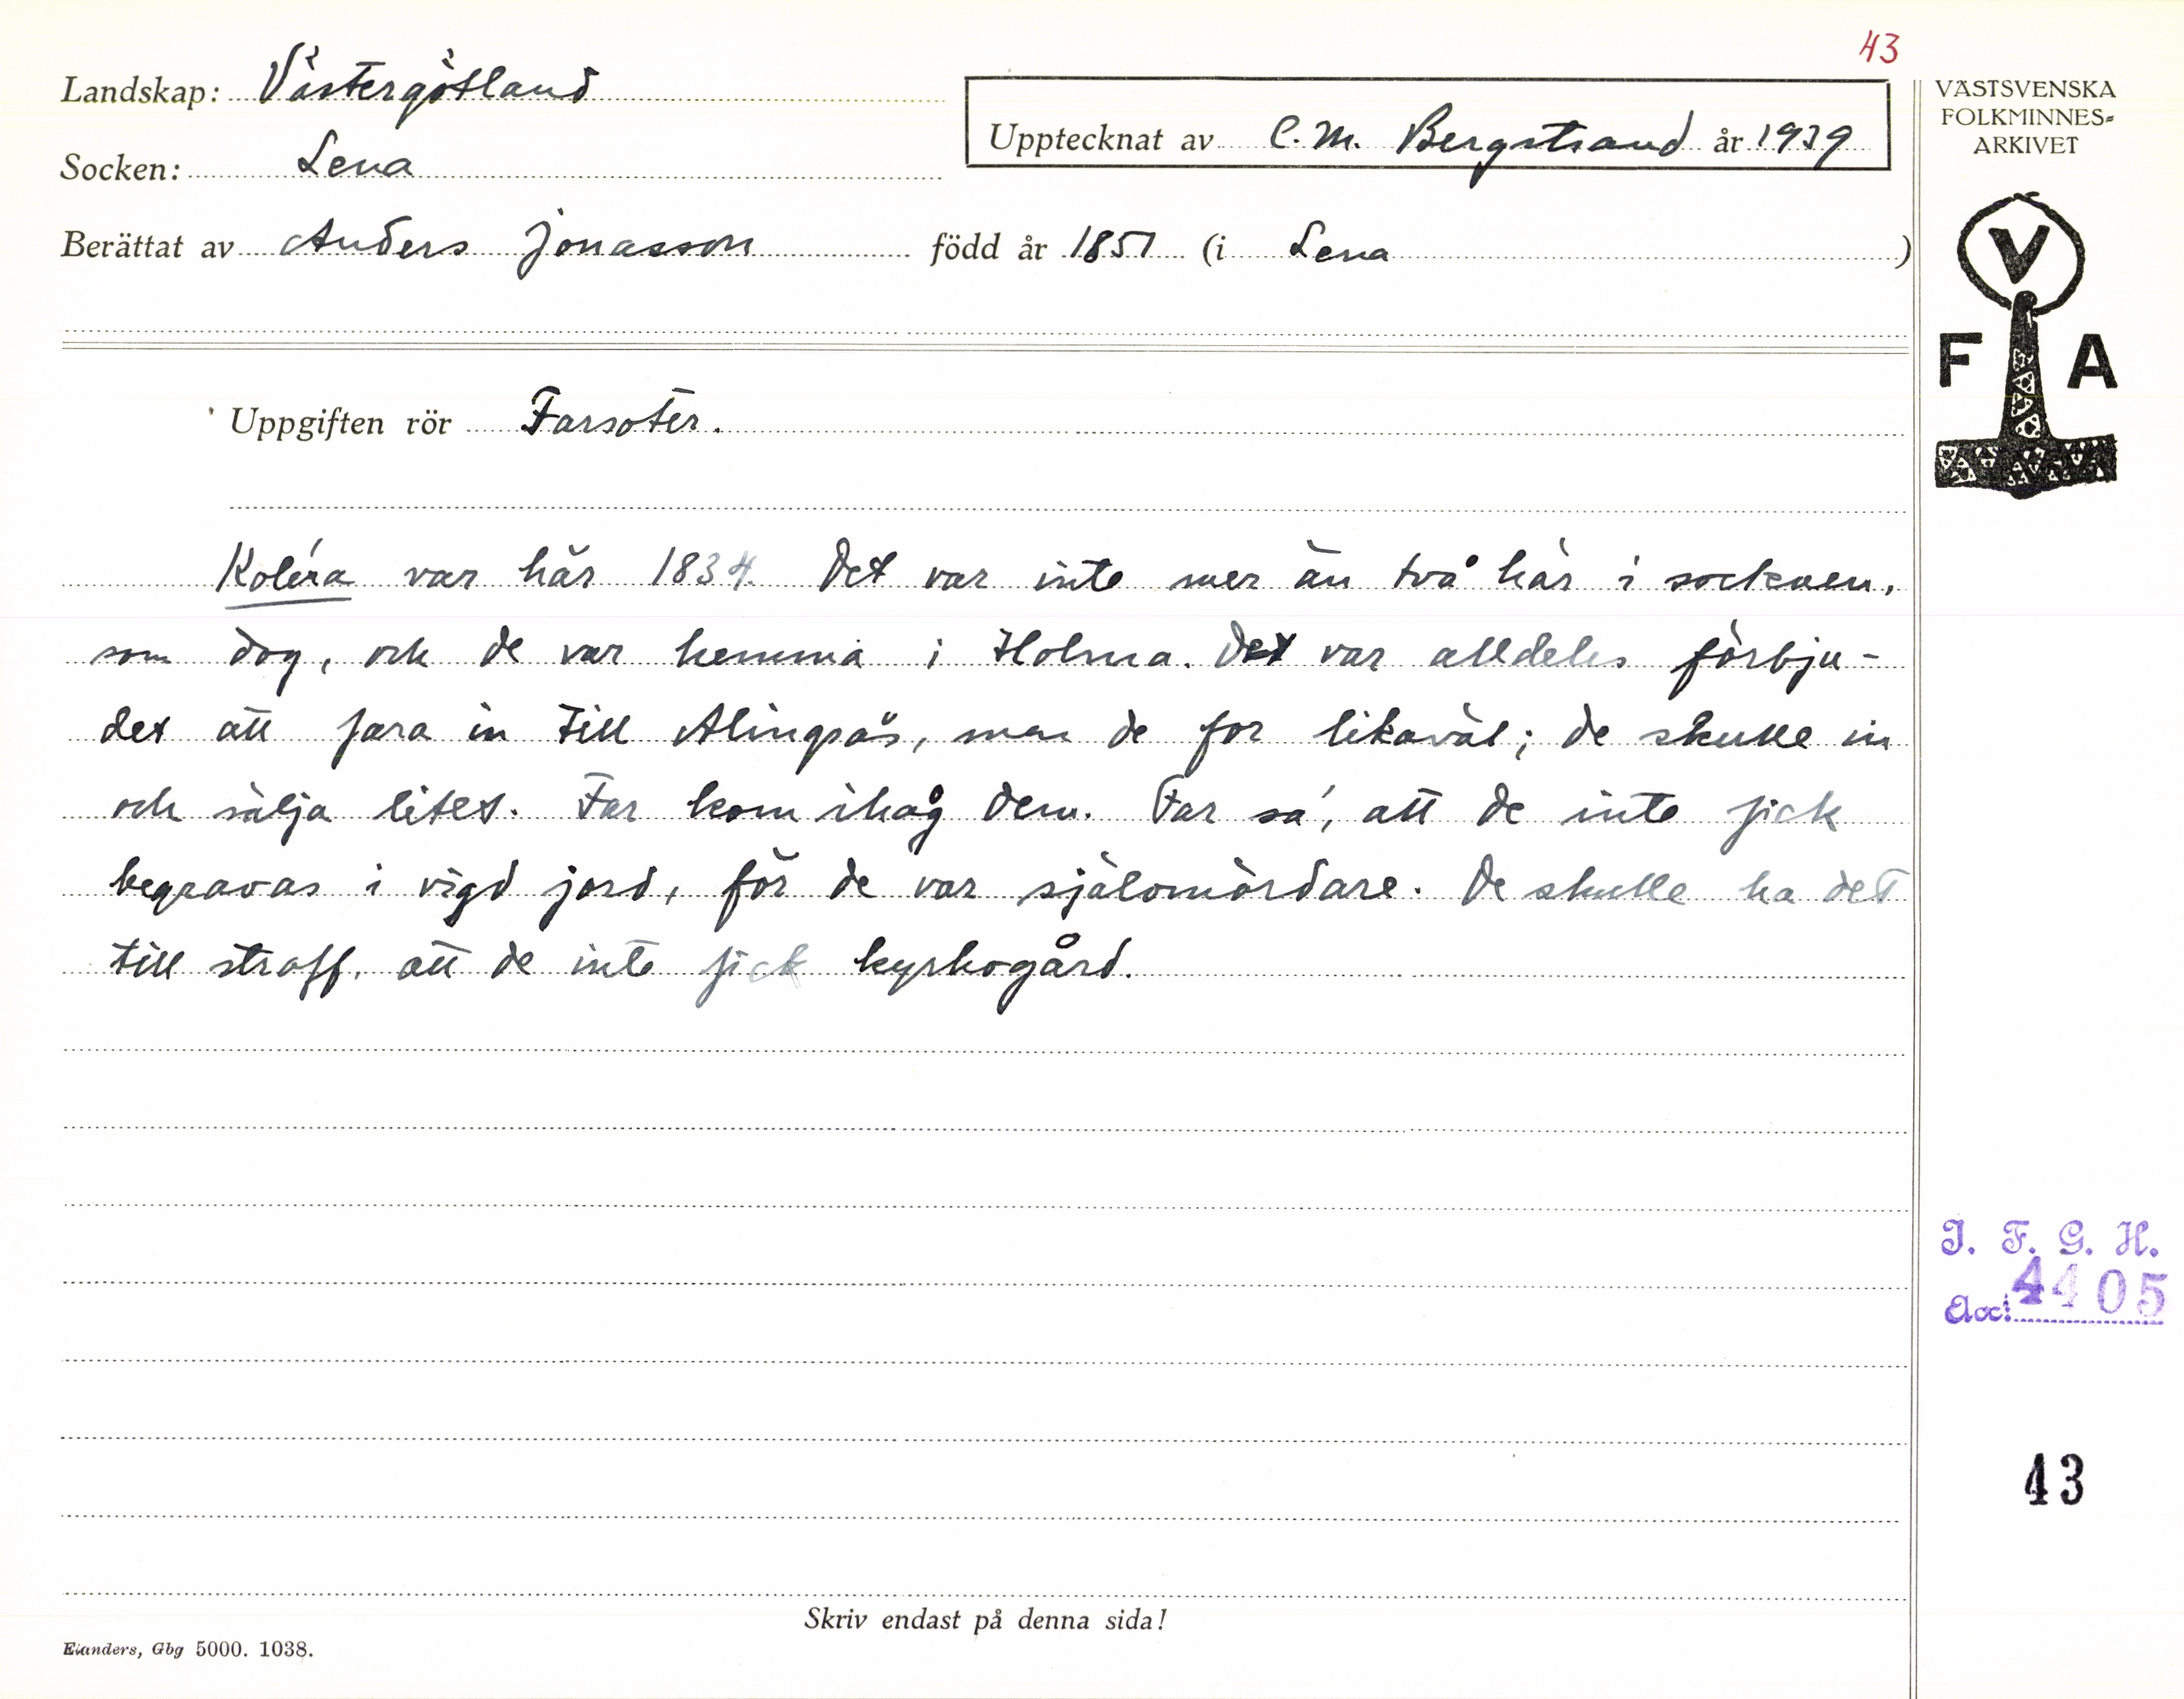 43
Landskap: Västergötland
Socken: Lena
Upptecknat av C. M. Bergstrand år 1939
Berättat av Anders Jonasson född år 1851 (i Lena )
VÄSTSVENSKA
FOLKMINNES=
ARKIVET
V
F A
Uppgiften rör Farsoter.
Koléra var här 1834. Det var inte mer än två här i socknen,
som dog, och de var hemma i Holma. Det var alldeles förbju-
det att fara in till Alingsås, men de for likaväl; de skulle in
och sälja litet. Far kom ihåg dem. Far sa', att de inte fick
begravas i vigd jord, för de var självmördare. De skulle ha det
till straff, att de inte fick kyrkogård.
I. F. G. H.
Acc. 4405
43
Skriv endast på denna sida!
Elanders, Gbg 5000. 1038.